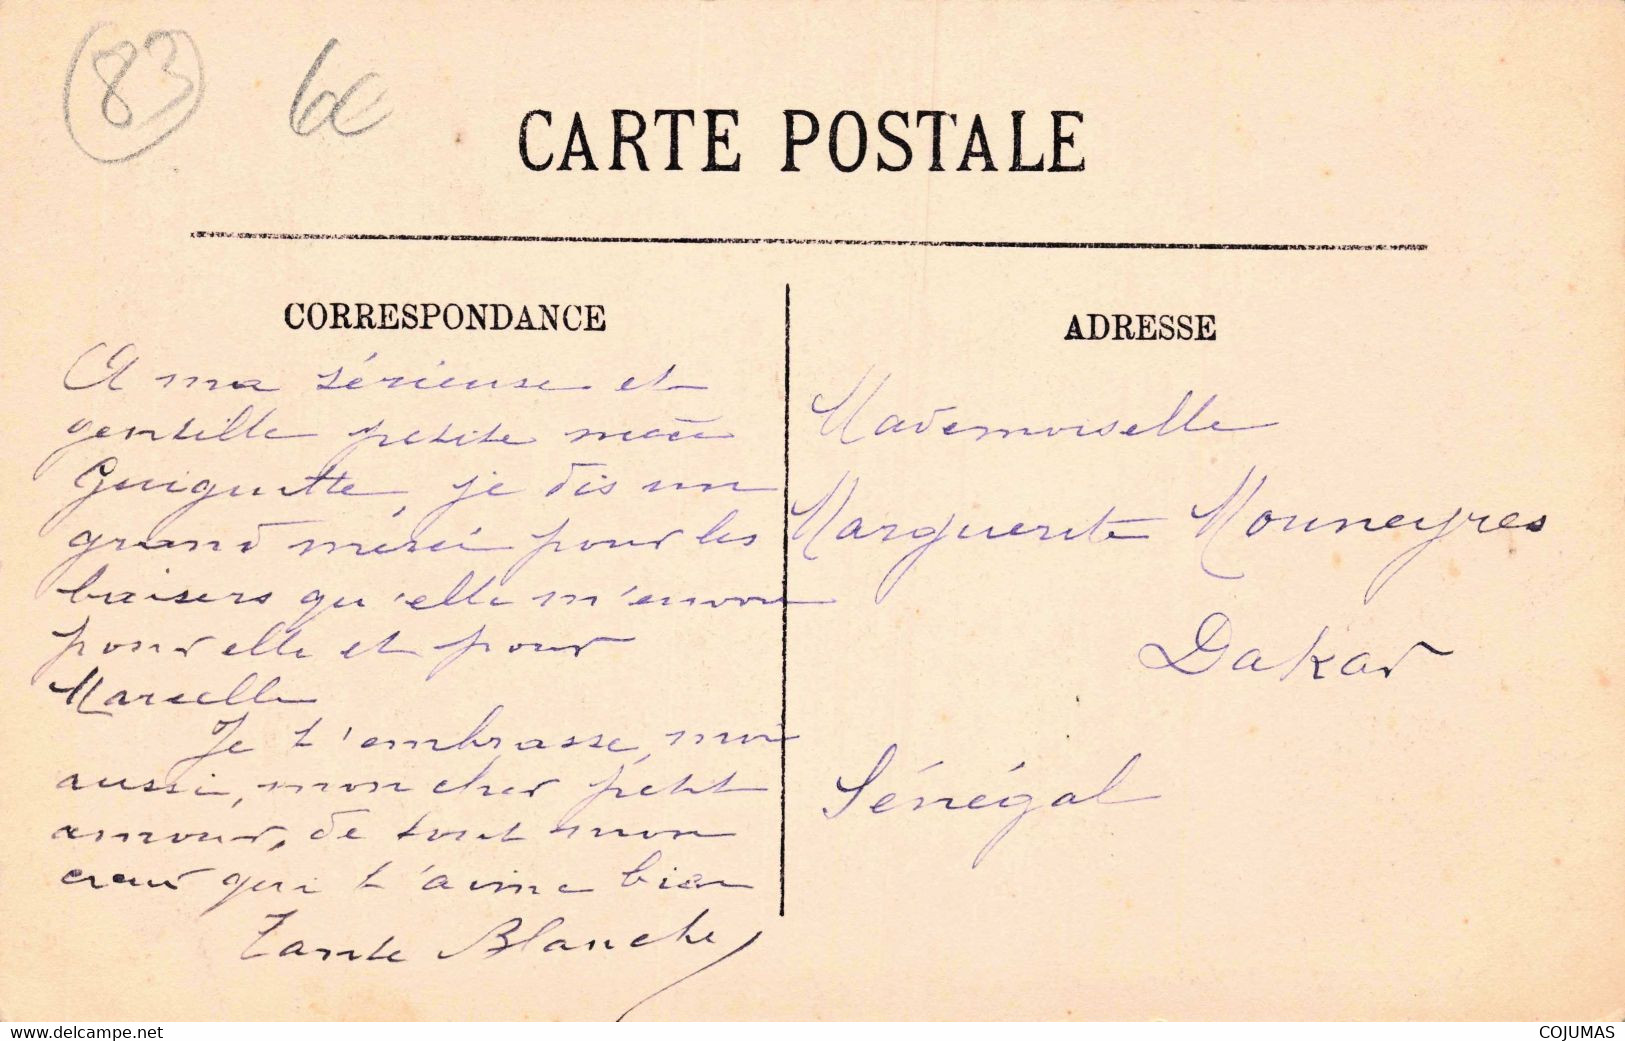 83 6€
CARTE POSTALE
CORRESPONDANCE
A ma sérieuse et
gentille petite nièce
Guiguitte, je dis un
grand mérci pour les
baisers qu'elle m'envoie
pour elle et pour
Marcelle
Je t'embrasse, moi
aussi, mon cher petit
amour, de tout mon
cœur qui t'aime bien
Tante Blanche
ADRESSE
Mademoiselle
Marguerite Mouneyres
Dakar
Sénégal
www.delcampe.net
COJUMAS